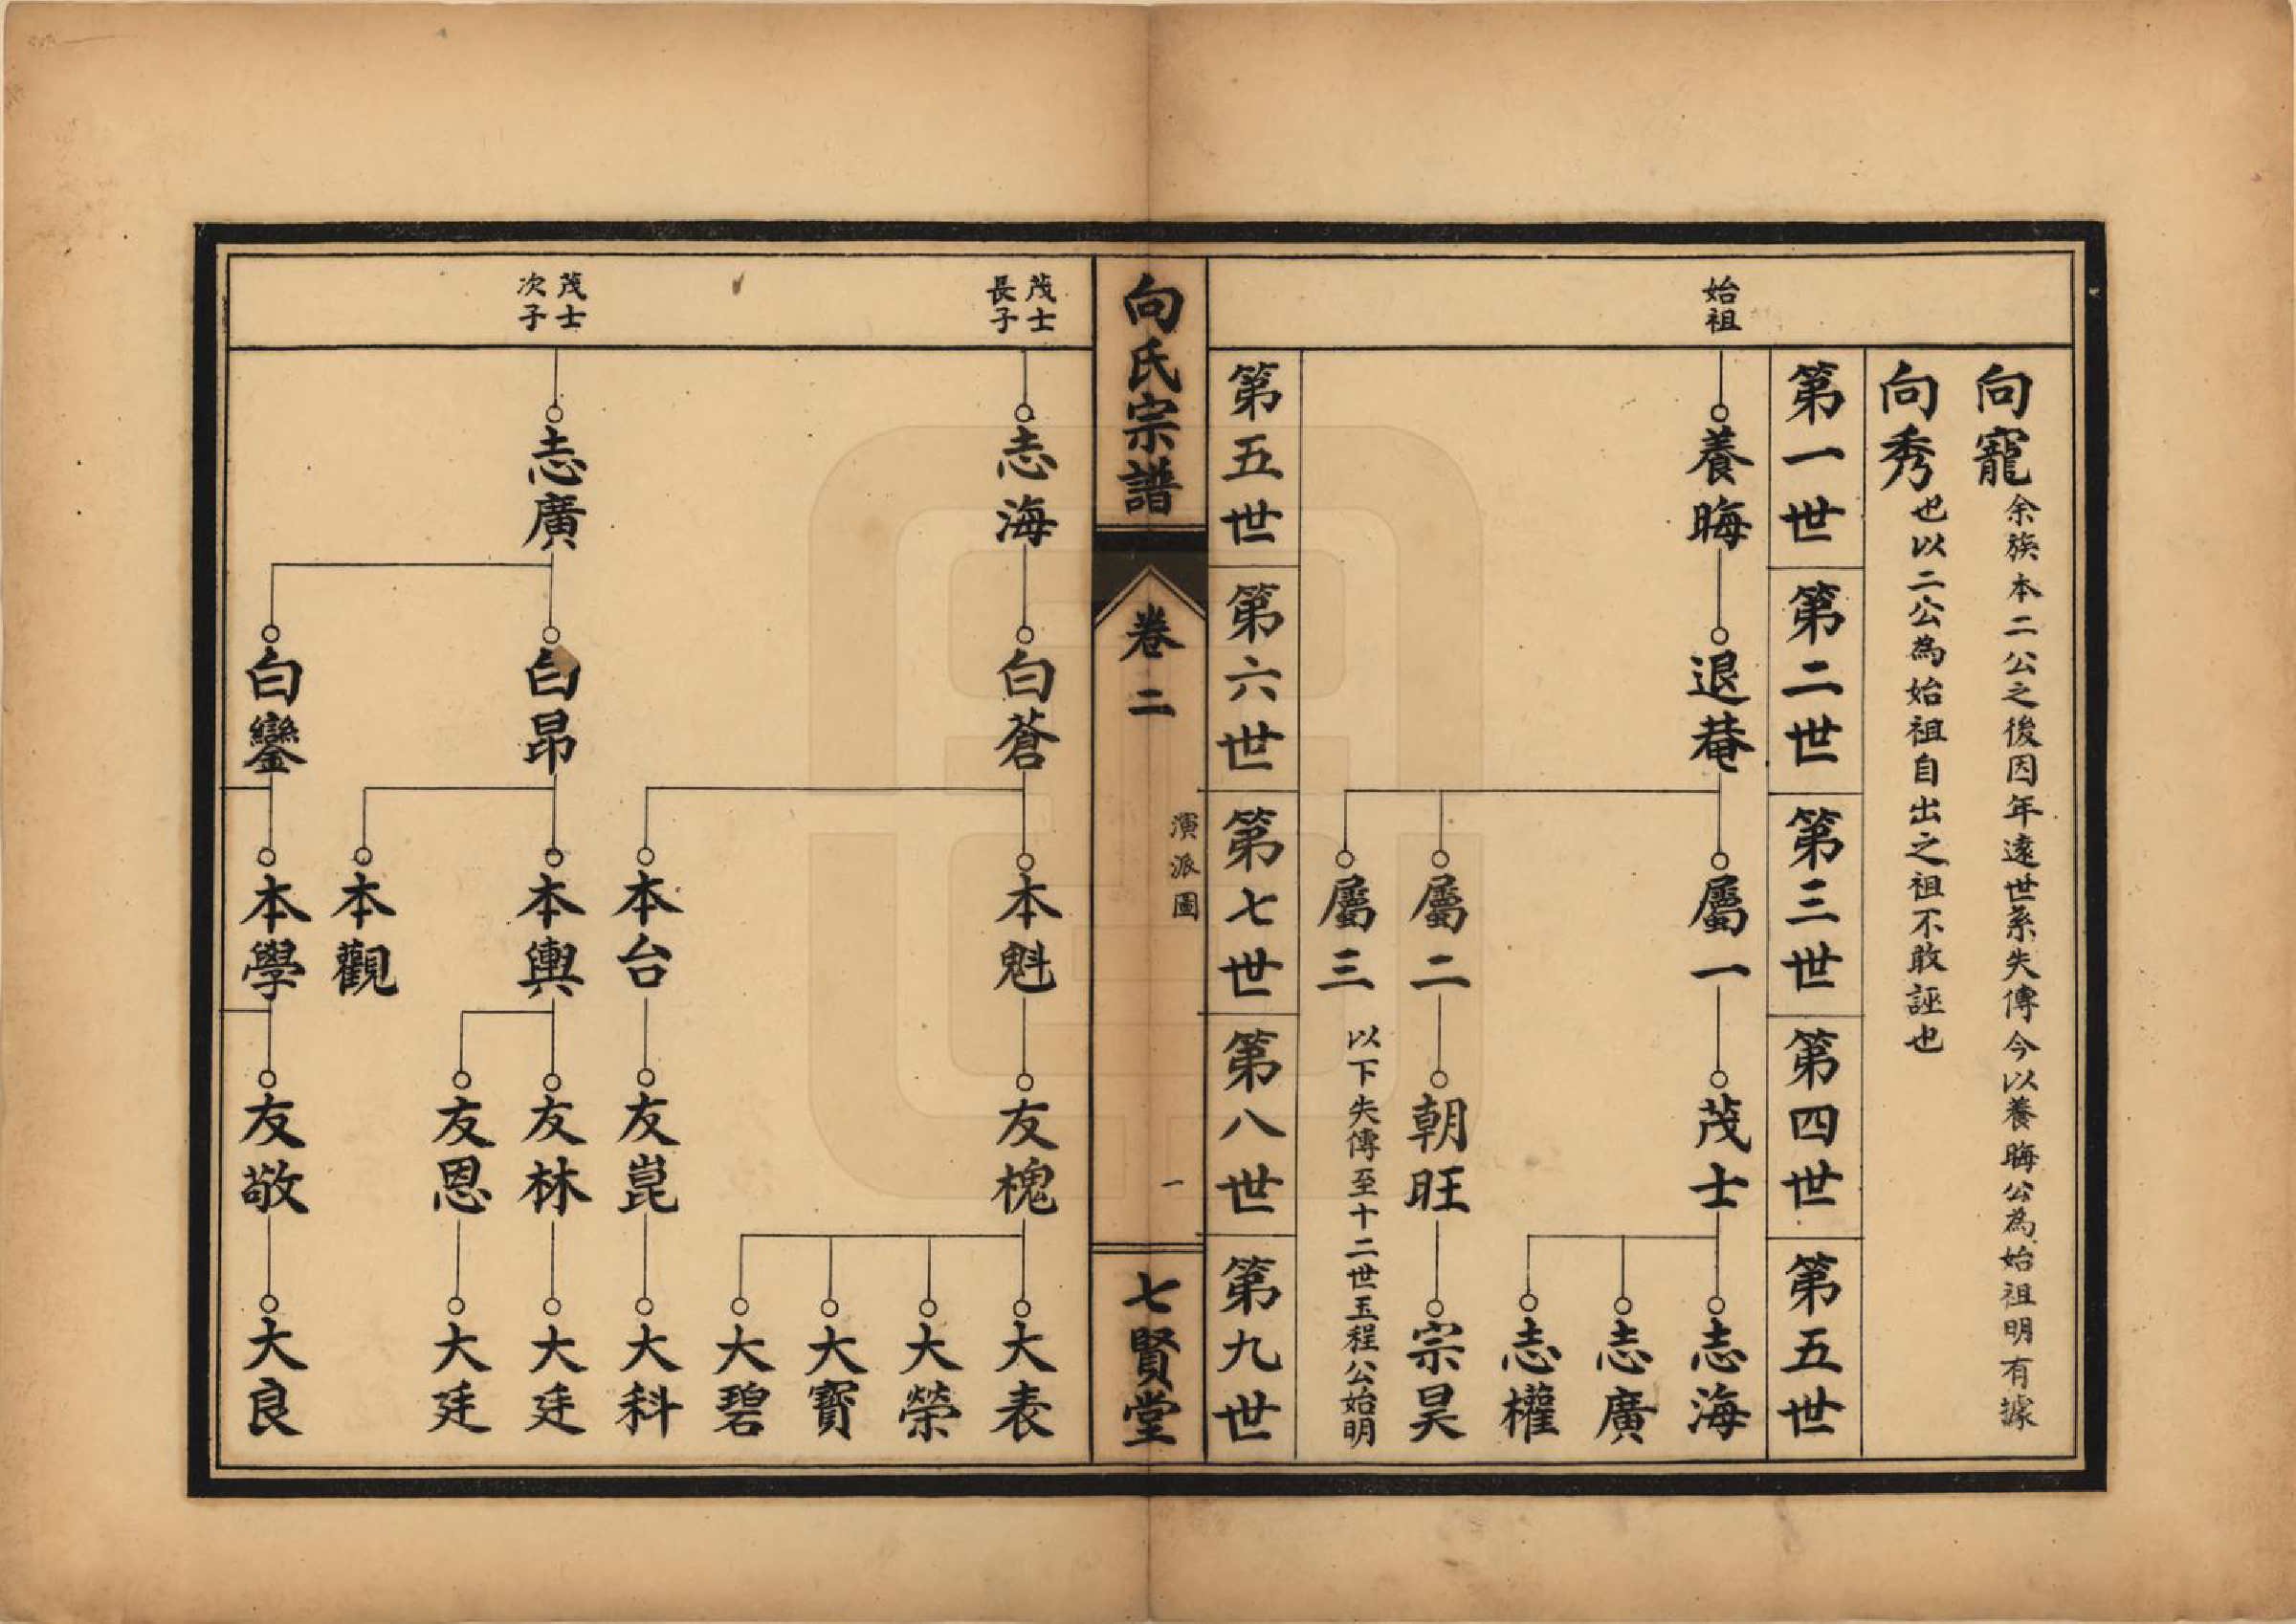 向寵
余族本二公之後因年遠世系失傳今以養晦公為始祖明有據
向秀
也以二公為始祖自出之祖不敢誣也
第一世
第二世
第三世
第四世
第五世
始祖
養晦
退菴
屬一
茂士
志海
志廣
志權
屬二
朝旺
宗昊
屬三
以下失傳至十二世玉程公始明
第五世
第六世
第七世
第八世
第九世
向氏宗譜
卷二
演派圖
一
七賢堂
茂士
長子
志海
白蒼
本魁
友槐
大表
大榮
大寶
大碧
本台
友崑
大科
茂士
次子
志廣
白昂
本輿
友林
大廷
友恩
大廷
本觀
白鑾
本學
友敬
大良